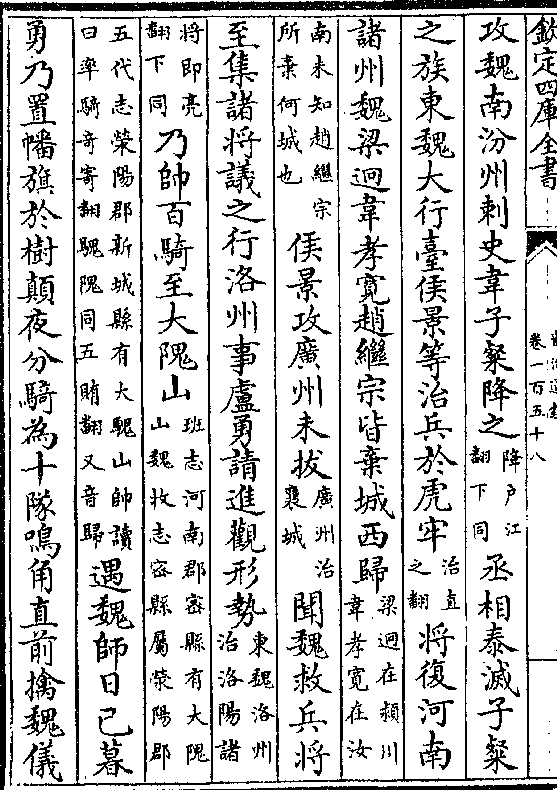 欽定四庫全書
卷一百五十八
攻魏南汾州刺史韋子粲降之降户江翻下同丞相泰滅子粲
之族東魏大行臺侯景等治兵於虎牢治直之翻將復河南
諸州魏梁迥韋孝寛趙繼宗皆棄城西歸梁迥在潁川韋孝寛在汝
南未知趙繼宗所棄何城也侯景攻廣州未拔廣州治襄城聞魏救兵將
至集諸將議之行洛州事盧勇請進觀形勢東魏洛州治洛陽諸
將即亮翻下同乃帥百騎至大隗山班志河南郡密縣有大隗山魏收志密縣屬滎陽郡
五代志滎陽郡新城縣有大騩山帥讀曰率騎奇寄翻騩隗同五賄翻又音歸遇魏師日已暮
勇乃置幡旗於樹顛夜分騎為十隊鳴角直前擒魏儀